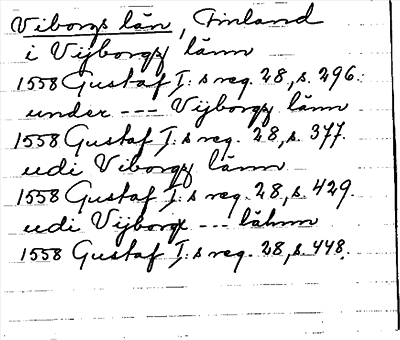 Viborgs län, Finland
i Vijborgz länn
1558 Gustaf I:s reg. 28, s. 296.
under --- Vijborgz länn
1558 Gustaf I:s reg. 28, s. 377.
udi Viborgz länn
1558 Gustaf I:s reg. 28, s. 429.
udi Vijborgx --- lähnn
1558 Gustaf I:s reg. 28, s. 448.